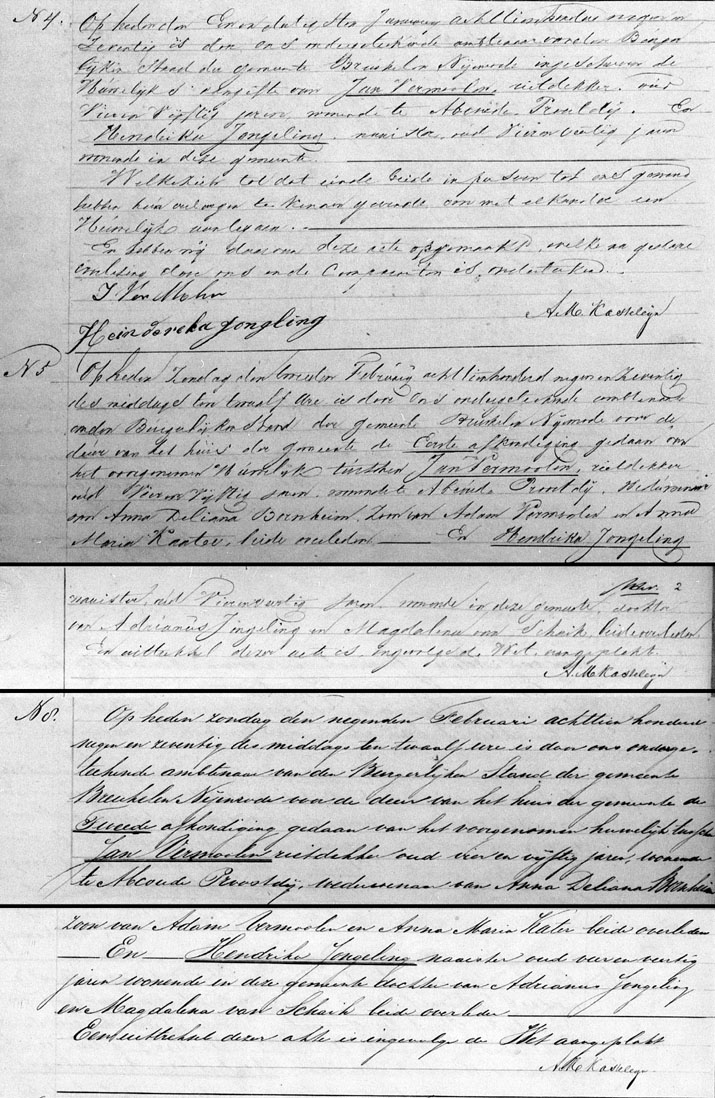 N 4. Op heden den Een en dertigsten Januari achttienhonderd negen en
Zeventig is door ons ondergeteekende ambtenaar van den Burger
lijken Stand der gemeente Breukelen Nijenrode ingeschreven de
Huwelijks aangifte van Jan Vermoolen, rietdekker, oud
Vier en Vijftig jaren, wonende te Abcoude Proostdij. En
Hendrika Jongeling, naaister, oud Vier en veertig jaren
wonende in deze gemeente.
Welke zich tot dat einde beide in persoon tot ons gewend
hebben hun verlangen te kennen gevende, om met elkander een
Huwelijk aan te gaan.
En hebben wij daarvan deze acte opgemaakt, welke na gedane
voorlezing door ons en de Comparanten is onderteekend.
J Ver Molen
A.M. Kasteleyn
Heinderika Jongling
N 5 Op heden Zondag den tweeden Februarij achttienhonderd negen en Zeventig
des middags ten twaalf ure is door ons ondergeteekende ambtenaar
van den Burgerlijken Stand der gemeente Breukelen Nijenrode voor de
deur van het huis der gemeente de Eerste afkondiging gedaan van
het voorgenomen Huwelijk tusschen Jan Vermoolen, rietdekker
oud Vier en Vijftig jaren, wonende te Abcoude Proostdij. Weduwnaar
van Anna Deliana Bornheim. Zoon van Adam Vermoolen en Anna
Maria Kaater, beide overleden. En Hendrika Jongeling
2
naaister, oud Vier en veertig jaren, wonende in deze gemeente, dochter
van Adrianus Jongeling en Magdalena van Schaik, beide overleden.
En uittreksel dezer acte is ingevolge de Wet aangeplakt.
A.M. Kasteleyn
N 8. Op heden zondag den negenden Februari achttien honderd
negen en zeventig des middags ten twaalf ure is door ons onderge-
teekende ambtenaar van den Burgerlijken Stand der gemeente
Breukelen Nijenrode voor de deur van het huis der gemeente de
Tweede afkondiging gedaan van het voorgenomen huwelijk tusschen
Jan Vermoolen rietdekker oud vier en vijftig jaren, wonende
te Abcoude Proostdij, weduwenaar van Anna Deliana Bornheim
zoon van Adam Vermoolen en Anna Maria Kater beide overleden
En Hendrika Jongeling naaister oud vier en veertig
jaren wonende in deze gemeente dochter van Adrianus Jongeling
en Magdalena van Schaik beide overleden
Een uittreksel dezer akte is ingevolge de Wet aangeplakt
A.M. Kasteleyn